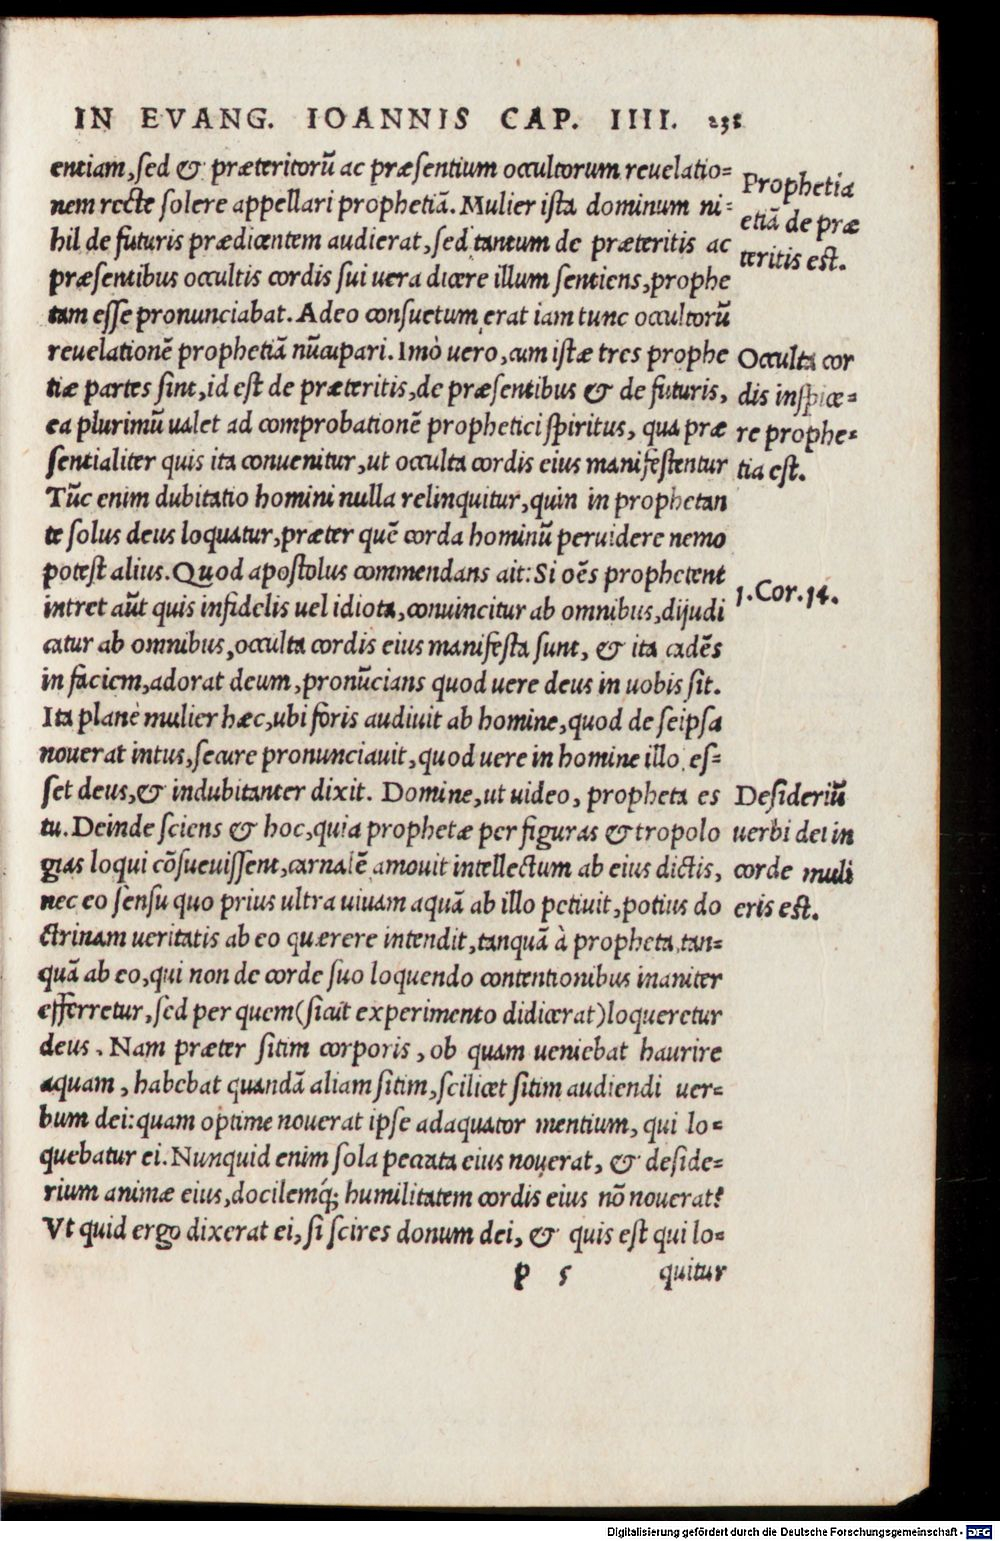 IN EVANG. IOANNIS CAP. IIII. 235
entiam, sed & præteritorũ ac præsentium occultorum reuelatio=
nem recte solere appellari prophetiã. Mulier ista dominum ni=
hil de futuris prædicentem audierat, sed tantum de præteritis ac
præsentibus occultis cordis sui uera dicere illum sentiens, prophe
tam esse pronunciabat. Adeo consuetum erat iam tunc occultorũ
reuelationẽ prophetiã nũcupari. Imò uero, cum istæ tres prophe
tiæ partes sint, id est de præteritis, de præsentibus & de futuris,
ea plurimũ ualet ad comprobationẽ prophetici spiritus, qua præ
sentialiter quis ita conuenitur, ut occulta cordis eius manifestentur
Tũc enim dubitatio homini nulla relinquitur, quin in prophetan
te solus deus loquatur, præter quẽ corda hominũ peruidere nemo
potest alius. Quod apostolus commendans ait: Si oẽs prophetent
intret aũt quis infidelis uel idiota, conuincitur ab omnibus, dijudi
catur ab omnibus, occulta cordis eius manifesta sunt, & ita cadẽs
in faciem, adorat deum, pronũcians quod uere deus in uobis sit.
Ita planè mulier hæc, ubi foris audiuit ab homine, quod de seipsa
nouerat intus, secure pronunciauit, quod uere in homine illo es=
set deus, & indubitanter dixit. Domine, ut uideo, propheta es
tu. Deinde sciens & hoc, quia prophetæ per figuras & tropolo
gias loqui cõsueuissent, carnalẽ amouit intellectum ab eius dictis,
nec eo sensu quo prius ultra uiuam aquã ab illo petiuit, potius do
ctrinam ueritatis ab eo quærere intendit, tanquã à propheta, tan=
quã ab eo, qui non de corde suo loquendo contentionibus inaniter
efferretur, sed per quem (sicut experimento didicerat) loqueretur
deus. Nam præter sitim corporis, ob quam ueniebat haurire
aquam, habebat quandã aliam sitim, scilicet sitim audiendi uer=
bum dei: quam optime nouerat ipse adaquator mentium, qui lo=
quebatur ei. Nunquid enim sola peccata eius nouerat, & deside=
rium animæ eius, docilemq́; humilitatem cordis eius nõ nouerat?
Vt quid ergo dixerat ei, si scires donum dei, & quis est qui lo=
p 5 quitur
Prophetia
etiã de præ
teritis est.
Occulta cor
dis inspice=
re prophe=
tia est.
1. Cor. 14.
Desideriũ
uerbi dei in
corde muli
eris est.
Digitalisierung gefördert durch die Deutsche Forschungsgemeinschaft - DFG